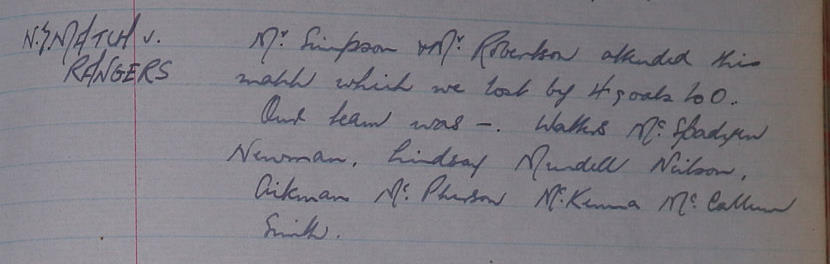 N.S. MATCH v.
RANGERS
Mr Simpson & Mr Robertson attended this
match which we lost by 4 goals to 0.
Our team was –. Watters McSpadyen
Newman, Lindsay Mundell Neilson,
Aikman McPherson McKenna McCallum
Smith.